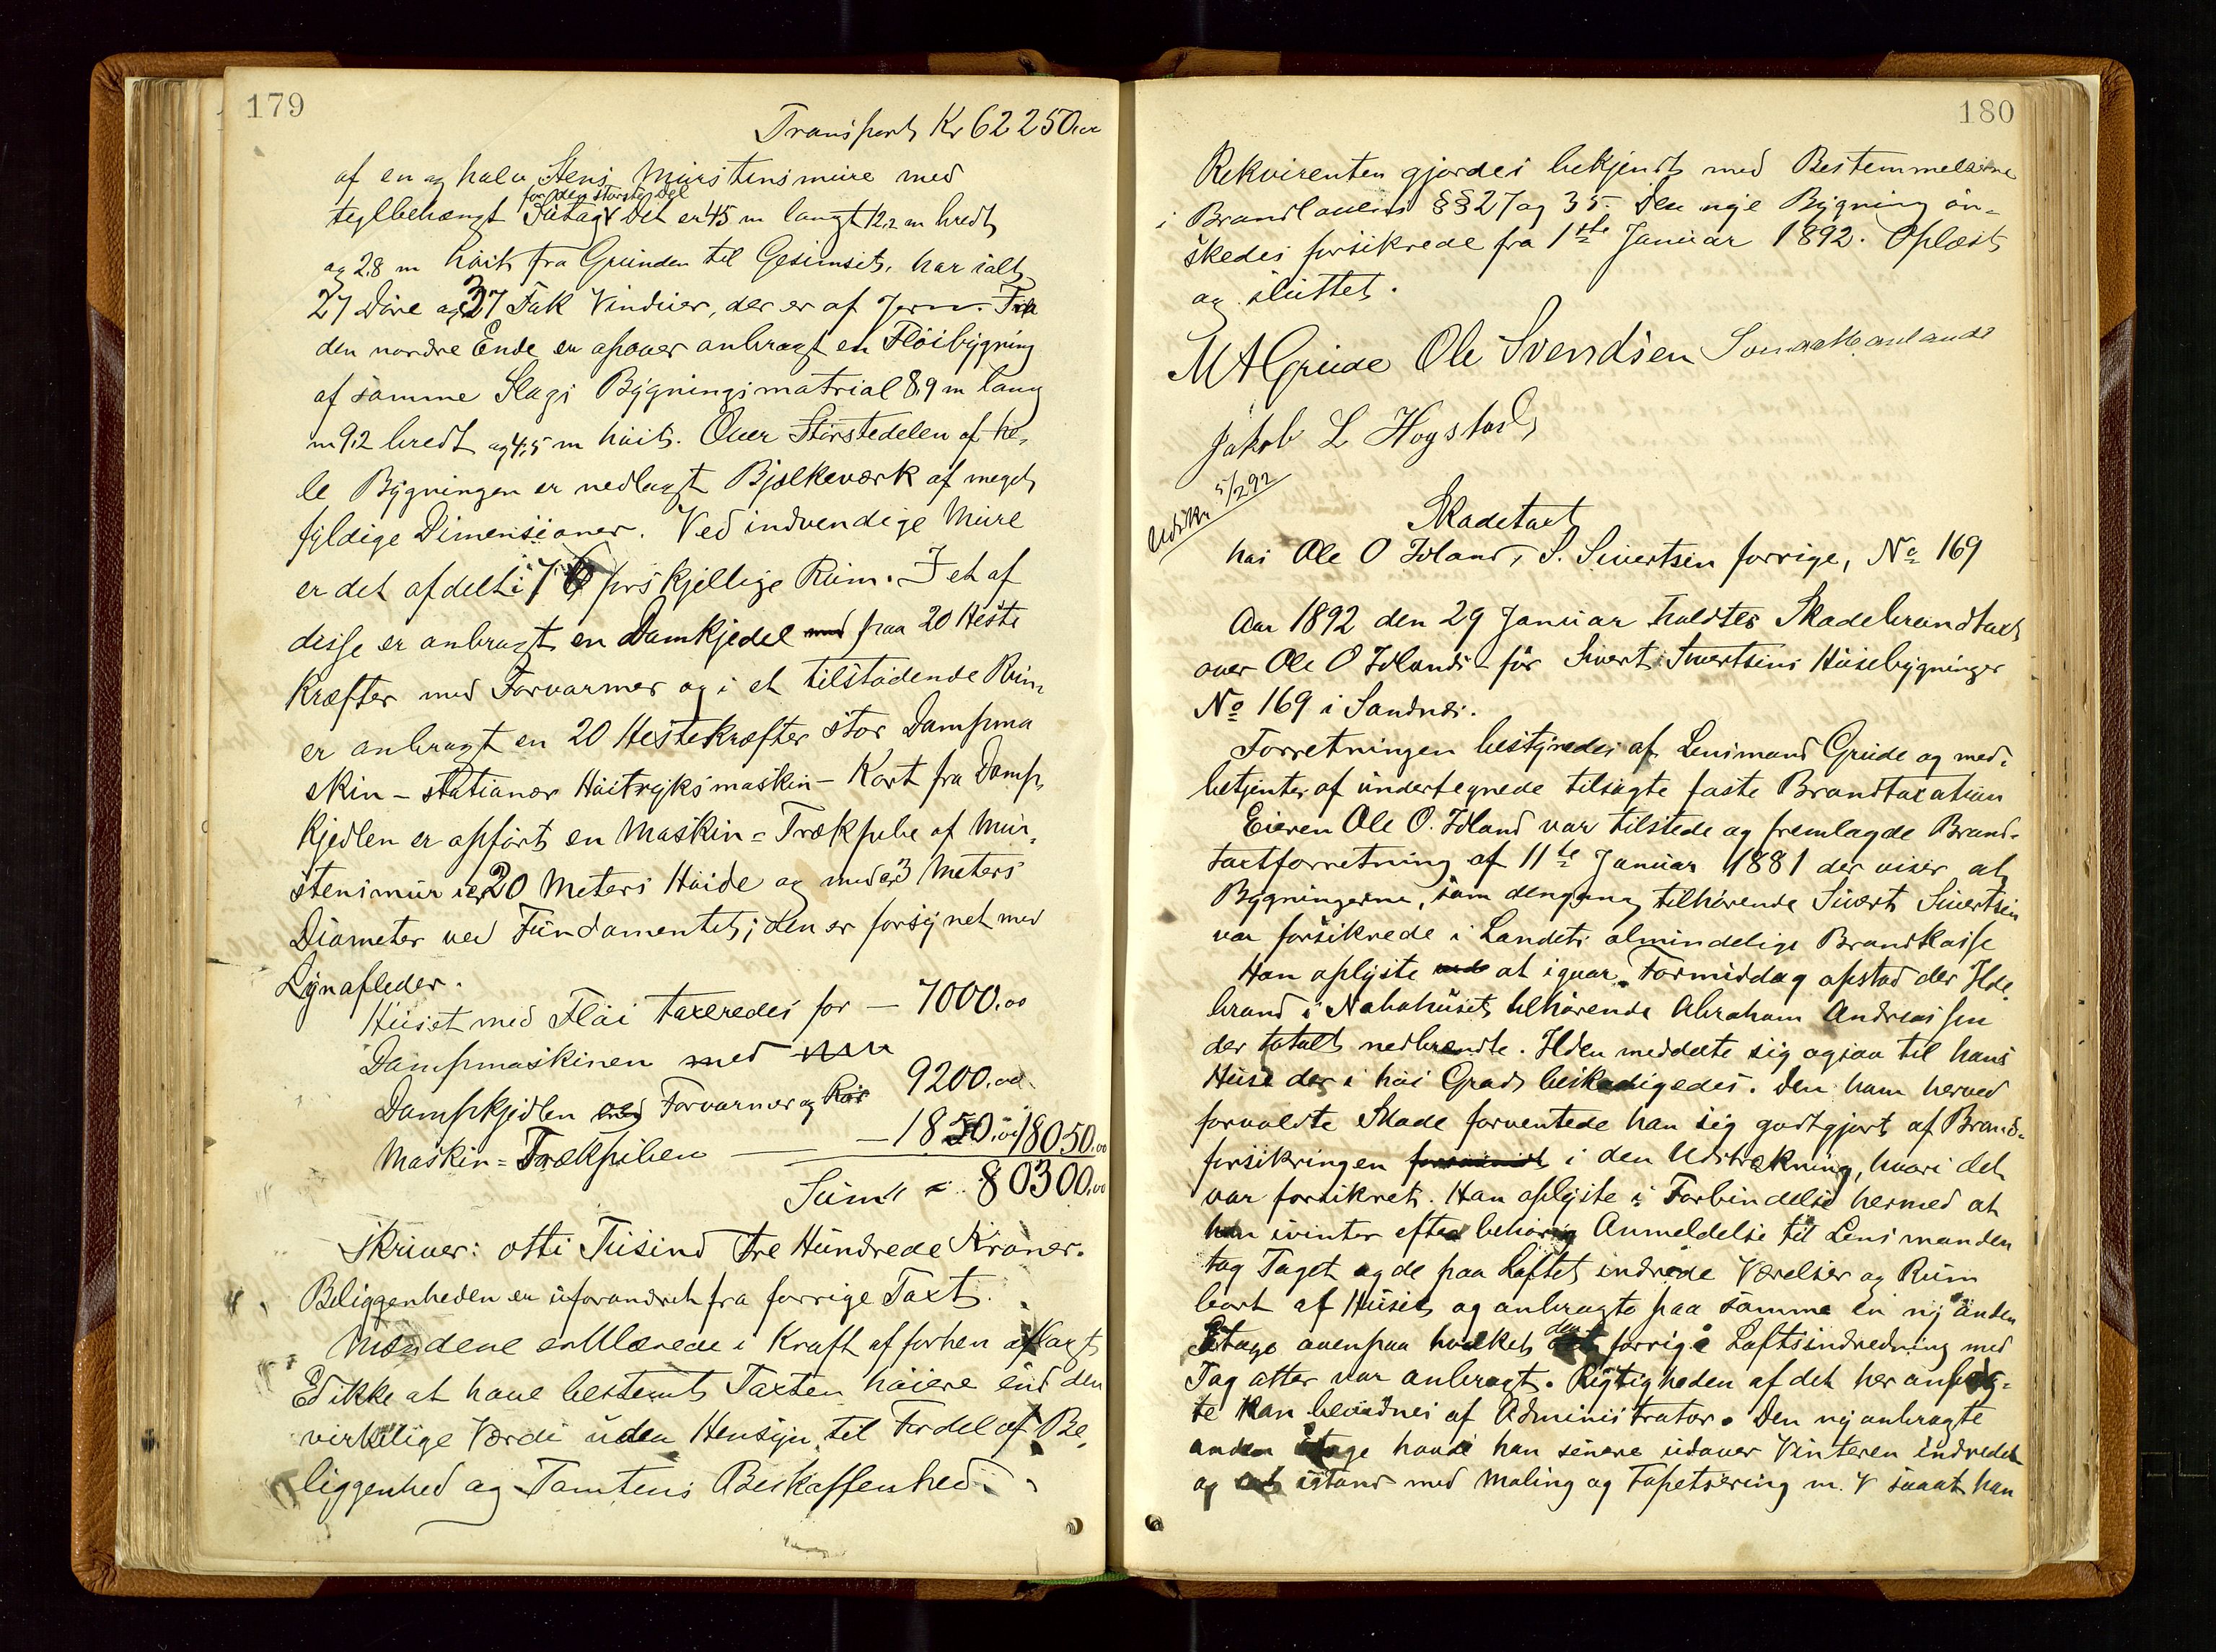 179
Transport Kr 62250.00
af en og halv Stens Murstensmure med
for den störste Del
teglbehængt Tag. Det er 45 m langt 12,2 m bredt
og 2,8 m höit fra Grunden til Gesimset, har ialt
27 Döre og 37 Fak Vinduer, der er af Jern. Fra
den nordre Ende er apaver anbragt en Flöibygning
af samme Slags Bygningsmatrial 8,9 m lang
m 9,2 bredt og 4,5 m höit. Over Störstedelen af he-
le Bygningen er nedlagt Bjælkeværk af meget
fyldige Dimensioner. Ved indvendige Mure
er det afdelt i 7 forskjellige Rum. I et af
disse er anbragt en Damkjedel med paa 20 Heste
Kræfter med Forvarmer og i et tilstödende Rum
er anbragt en 20 Hestekræfter stor Dampma
skin – stationær Höitryksmaskin – Kort fra Damp
kjedlen er opfört en Maskin = Trækpibe af Mur-
stensmur i er 20 Meters Höide og med er 3 Meters
Diameter ved Fundamentet; den er forsynet med
Lynafleder.
Huset med Flöi taxeredes for – 7000.00
Dampmaskinen med
Dampkjedlen med Forvarmer og Rör 9200.00
Maskin = Trækpiben – 1850.00 18050.00
Sum Kr. 80300.00
Skriver: otti Tusind tre Hundrede Kroner.
Beliggenheden er uforandret fra forrige Taxt.
Mændene erklærede i Kraft af forhen aflagt
Ed ikke at have bestemt Taxten höiere end den
virkelige Værdi uden Hensyn til Fordel af Be-
liggenhed og Tomtens Beskaffenhed.
180
Rekvirenten gjordes bekjendt med Bestemmelserne
i Brandlovens §§ 27 og 35. Den nye Bygning ön-
skedes forsikrede fra 1ste Januar 1892. Oplæst
og sluttet.
M A Grude Ole Svendsen
Jakob L Hogstad
Udskr 5/2 92
Skadetaxt
hos Ole O Idland, S. Sivertsen forrige, No 169
Aar 1892 den 29 Januar holdtes Skadebrandtaxt
over Ole O Idlands för Sivert Sivertsens Husebygninger
No 169 i Sandnes.
Forretningen bestyredes af Lensmand Grude og med-
betjentes af undertegnede tilsagte faste Brandtaxatmn
Eieren Ole O. Idland var tilstede og fremlagde Brand-
taxtforretning af 11te Januar 1881 der viser at
Bygningerne, som dengang tilhörende Sivert Sivertsen
var forsikrede i Landets almindelige Brandkasse
Han oplyste at igaar Formiddag opstod der Ilde
brand i Nabohuset tilhörende Abraham Andreassen
der totalt nedbrendte. Ilden meddelte sig ogsaa til hans
Huse der i höi Grad beskadigedes. Den ham herved
forvoldte Skade forventede han sig godtgjort af Brand-
forsikringen i den Udstrækning, hvori det
var forsikret. Han oplyste i Forbindelse hermed at
han ivinter efter behörig Anmeldelse til Lensmanden
tog Taget og de paa Loftet indrede Værelser og Rum
bort af Huset og anbragte paa samme en ny anden
Etage ovenpaa hvilket den forrige Loftsindredning med
Tag atter var anbragt. Rigtigheden af det her anförg=
te kan bevidnes af Administrator. Den ny anbragte
anden Etage havde han senere udover Vinteren indredet
og sat istand med Maling og Tapetsering m. v saaat han